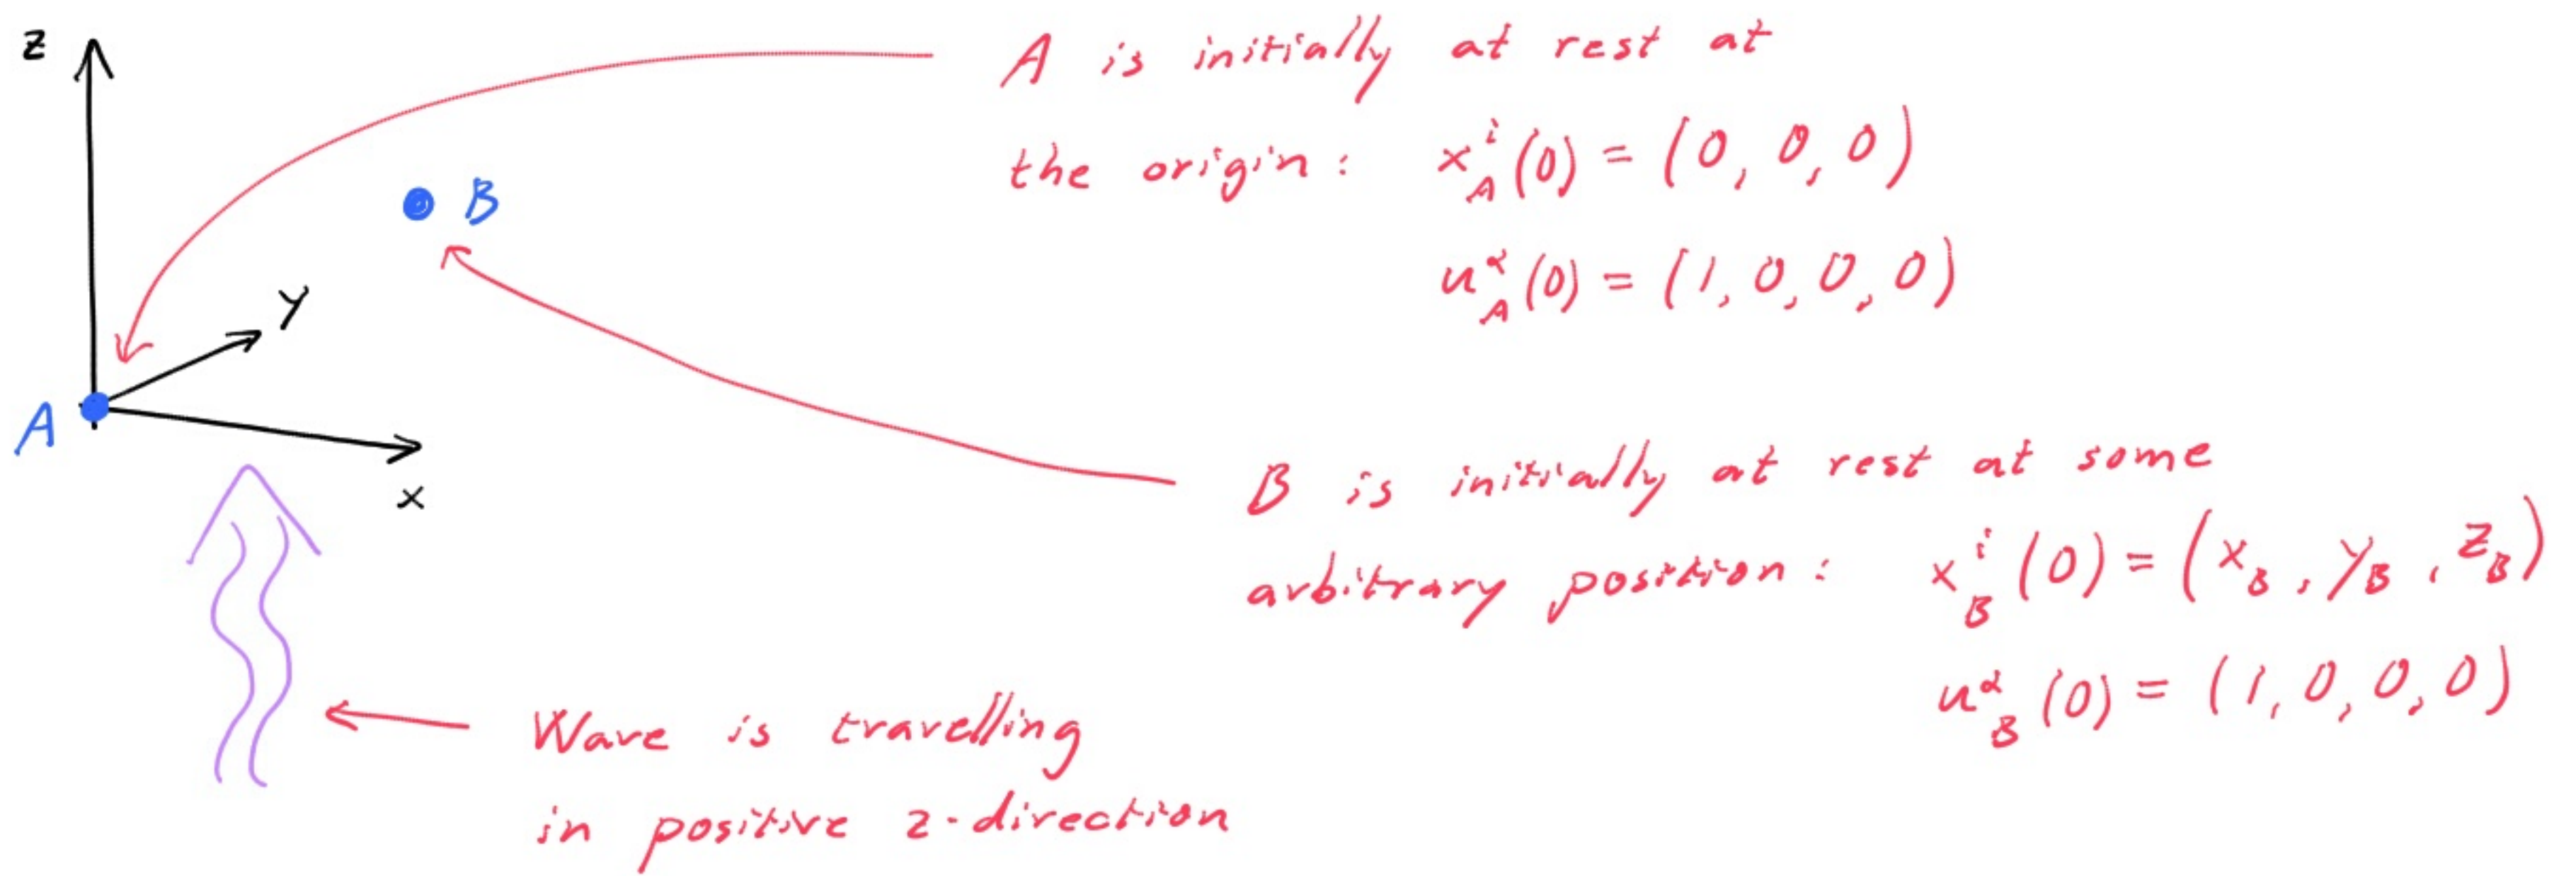 z
A is initially at rest at
the origin: x_A^i(0) = (0, 0, 0)
u_A^α(0) = (1, 0, 0, 0)
B
y
A
x
B is initially at rest at some
arbitrary position: x_B^i(0) = (x_B, y_B, z_B)
u_B^α(0) = (1, 0, 0, 0)
Wave is travelling
in positive z-direction